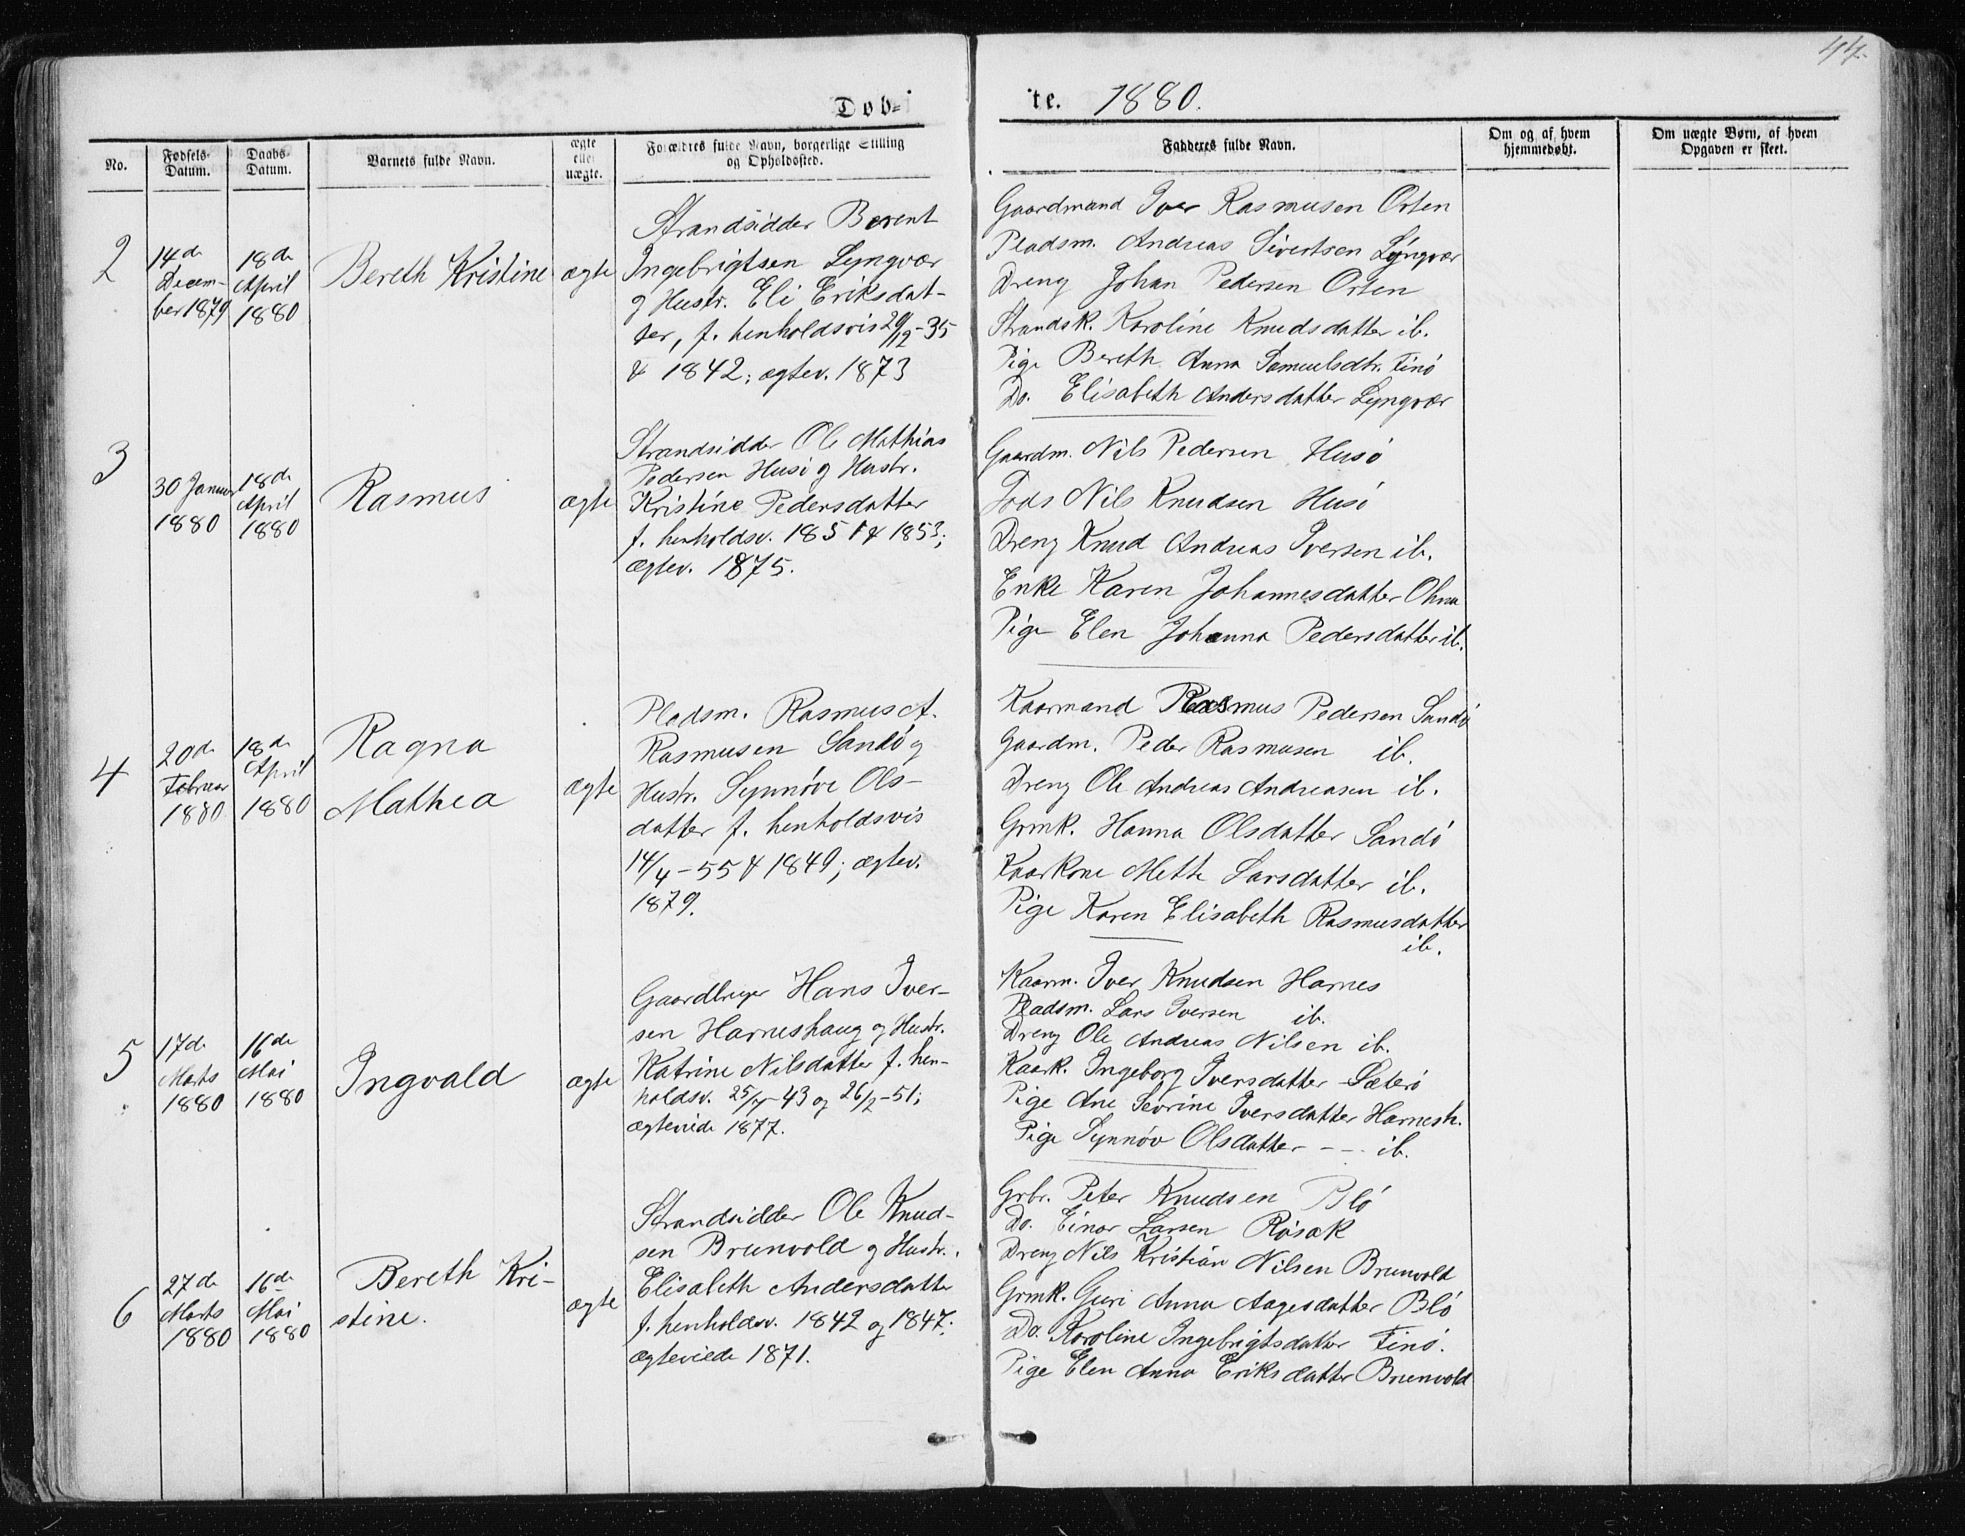 44.
Døb-
te. 1880.
No.
Fødsels-
Datum.
Daabs-
Datum.
Barnets fulde Navn.
ægte
eller
uægte.
Forældres fulde Navn, borgerlige Stilling
og Opholdssted.
Fadderes fulde Navn.
Om og af hvem
hjemmedøbt.
Om uægte Børn, af hvem
Opgaven er skeet.
2
14de
Decem-
ber 1879
18de
April
1880
Bereth Kristine
ægte
Strandsidder Berent
Ingebrigtsen Lyngvær
og Hustr. Eli Eriksdat-
ter, f. henholdsvis 29/12-35
& 1842; ægtev. 1873
Gaardmand Iver Rasmusen Orten
Pladsm. Andreas Sivertsen Lyngvær
Dreng Johan Pedersen Orten
Strandsk. Karoline Knudsdatter ib.
Pige Bereth Anna Samuelsdtr. Finø
Do. Elisabeth Andersdatter Lyngvær
3
30 Januar
1880
18de
April
1880
Rasmus
ægte
Strandsidder Ole Mathias
Pedersen Husø og Hustr.
Kristine Pedersdatter
f. henholdsv. 1851 & 1853;
ægtev. 1875.
Gaardm. Nils Pedersen Husø
Nils Knudsen Husø
Dreng Knud Andreas Iversen ib.
Enke Karen Johannesdatter Ohna
Pige Elen Johanna Pedersdatter ib.
4
20de
Februar
1880
18de
April
1880
Ragna
Mathea
ægte
Pladsm. Rasmus A.
Rasmusen Sandø og
Hustr. Synnøve Ols-
datter f. henholdsvis
14/4-55 & 1849; ægtev.
1879.
Kaarmand Rasmus Pedersen Sandø
Gaardm. Peder Rasmusen ib.
Dreng Ole Andreas Andreasen ib.
Grmk. Hanna Olsdatter Sandø
Kaarkone Mette Larsdatter ib.
Pige Karen Elisabeth Rasmusdatter
ib.
5
17de
Marts
1880
16de
Mai
1880
Ingvald
ægte
Gaardbruger Hans Iver-
sen Harneshaug og Hustr.
Katrine Nilsdatter f. hen-
holdsv. 43 og 26/2-51;
ægteviede 1877.
Kaarm. Iver Knudsen Harnes
Pladsm. Lars Iversen ib.
Dreng Ole Andreas Nilsen ib.
Kaark. Ingeborg Iversdatter Sæterø
Pige Ane Sevrine Iversdatter Harnesh.
Pige Synnøv Olsdatter - - - ib.
6
27de
Marts
1880
16de
Mai
1880
Bereth Kri-
stine.
ægte
Strandsidder Ole Knud-
sen Brunvold og Hustr.
Elisabeth Andersdatter
f. henholdsv. 1842 og 1847;
ægteviede 1871.
Grbr. Peter Knudsen Blø
Do. Einar Larsen Røsak
Dreng Nils Kristian Nilsen Brunvold
Grmk. Guri Anna Aagesdatter Blø
Do. Karoline Ingebrigtsdatter Finø.
Pige Elen Anna Eriksdatter Brunvold